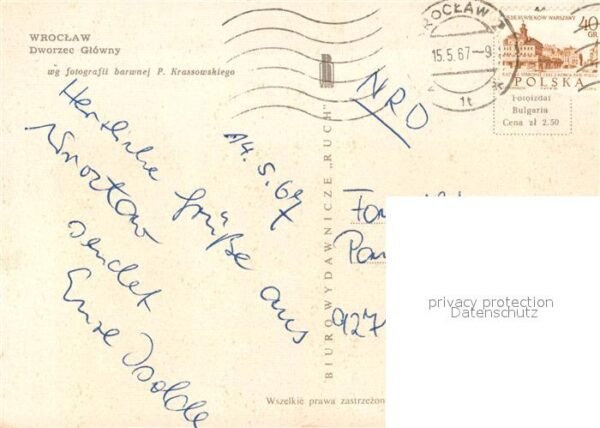 WROCŁAW
Dworzec Główny
wg fotografii barwnej P. Krassowskiego
WROCŁAW 2
15.5.67-9
1t
40
GR
POLSKA
Fotoizdat
Bulgaria
Cena zł 2.50
NRD
14.5.67
Herzliche Grüße aus
Wrocław
sendet
Eure Isolde
BIURO WYDAWNICZE „RUCH"
Fam
927
privacy protection
Datenschutz
Wszelkie prawa zastrzeżon